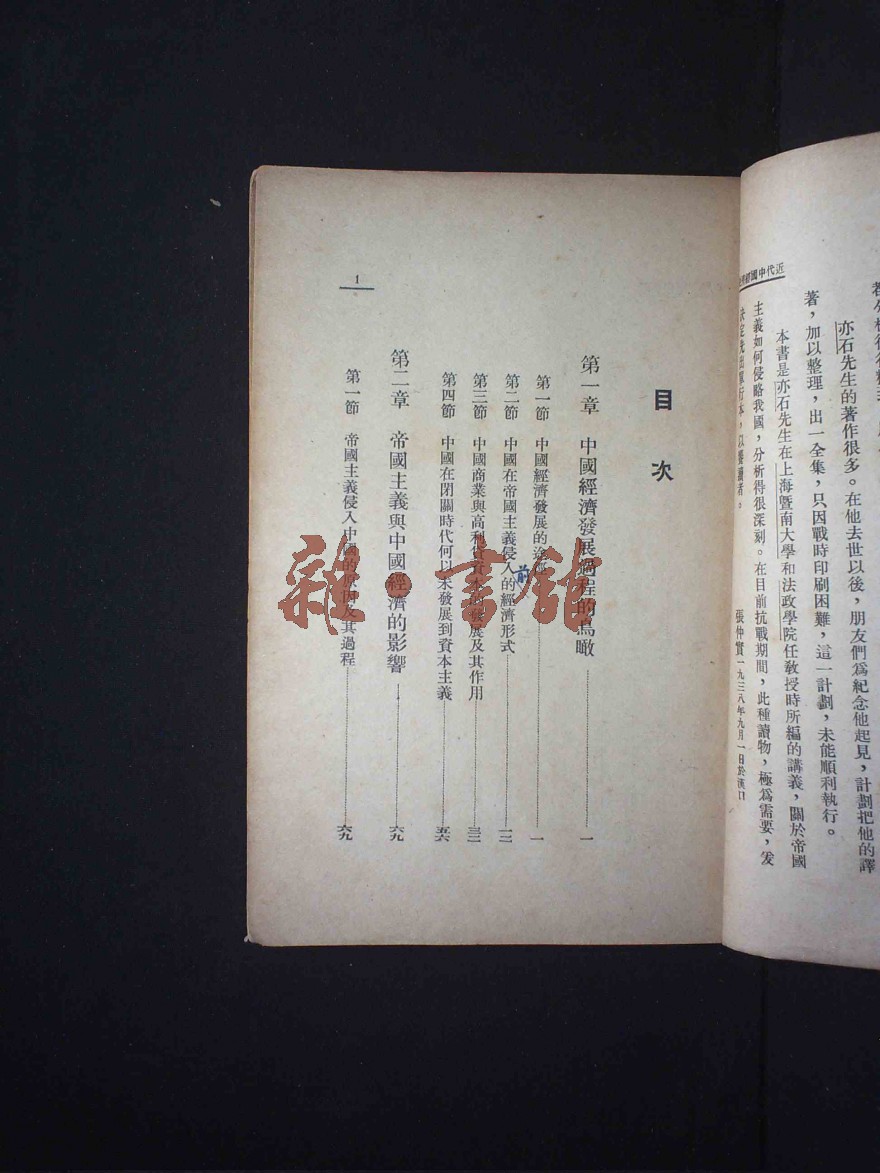 亦石先生的著作很多。在他去世以後，朋友們爲紀念他起見，計劃把他的譯
著，加以整理，出一全集，只因戰時印刷困難，這一計劃，未能順利執行。
本書是亦石先生在上海暨南大學和法政學院任教授時所編的講義，關於帝國
主義如何侵略我國，分析得很深刻。在目前抗戰期間，此種讀物，極爲需要，爰
決定先出單行本，以饗讀者。
張仲實一九三八年九月一日於漢口
近代中國
目次
第一章 中國經濟發展過程的鳥瞰 一
第一節 中國經濟發展的途 一
第二節 中國在帝國主義侵入前的經濟形式 一二
第三節 中國商業與高利貸資本的發展及其作用 三二
第四節 中國在閉關時代何以未發展到資本主義 五六
第二章 帝國主義與中國經濟的影響 六九
第一節 帝國主義侵入中國的原因及其過程 六九
1
雜·書館